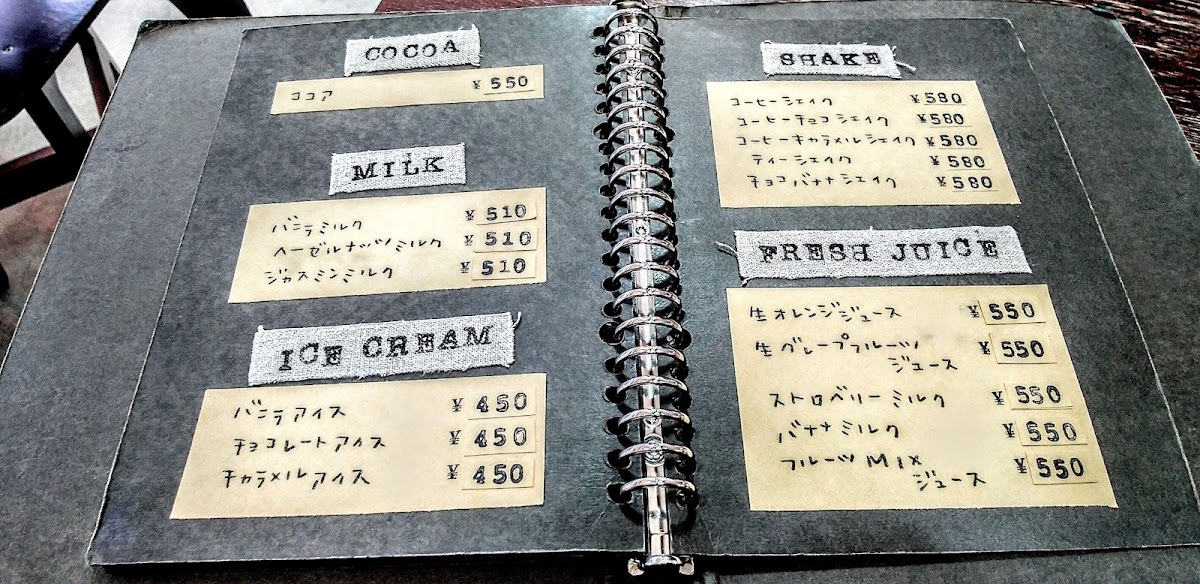 COCOA
ココア ¥550
MILK
バニラミルク ¥510
ヘーゼルナッツミルク ¥510
ジャスミンミルク ¥510
ICE CREAM
バニラアイス ¥450
チョコレートアイス ¥450
キャラメルアイス ¥450
SHAKE
コーヒーシェイク ¥580
コーヒーチョコシェイク ¥580
コーヒーキャラメルシェイク ¥580
ティーシェイク ¥580
チョコバナナシェイク ¥580
FRESH JUICE
生オレンジジュース ¥550
生グレープフルーツ ¥550
ジュース
ストロベリーミルク ¥550
バナナミルク ¥550
フルーツMIX ¥550
ジュース